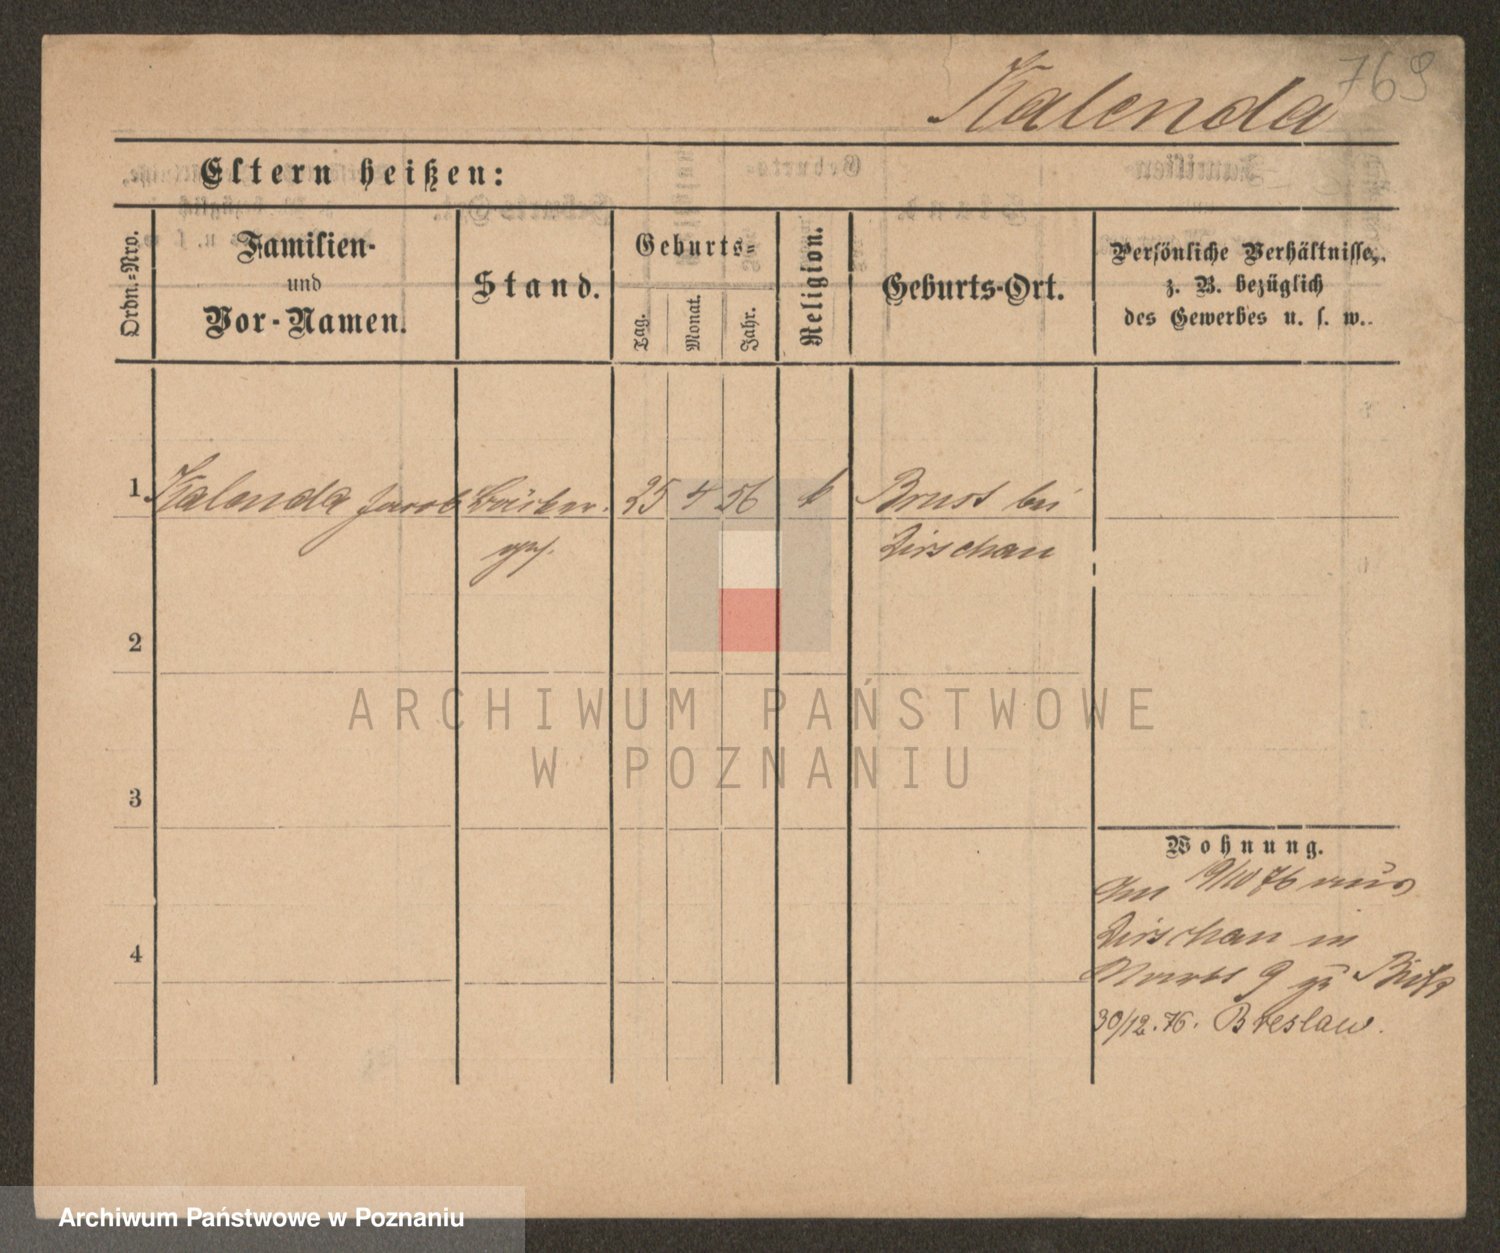 Kalenda 769
Eltern heißen:
Ordn.-Nro.
Familien-
und
Vor-Namen.
Stand.
Geburts-
Tag.
Monat.
Jahr.
Religion.
Geburts-Ort.
Persönliche Verhältnisse,
z. B. bezüglich
des Gewerbes u. s. w.
1 Kalenda Jacob Bäcker 25 4 56 k Brust bei
ges. Dirschau
2
3
4
Wohnung.
Am 19/10 76 aus
Dirschau in
Markt 9 zu
30/12. 76. Breslau.
ARCHIWUM PAŃSTWOWE
W POZNANIU
Archiwum Państwowe w Poznaniu